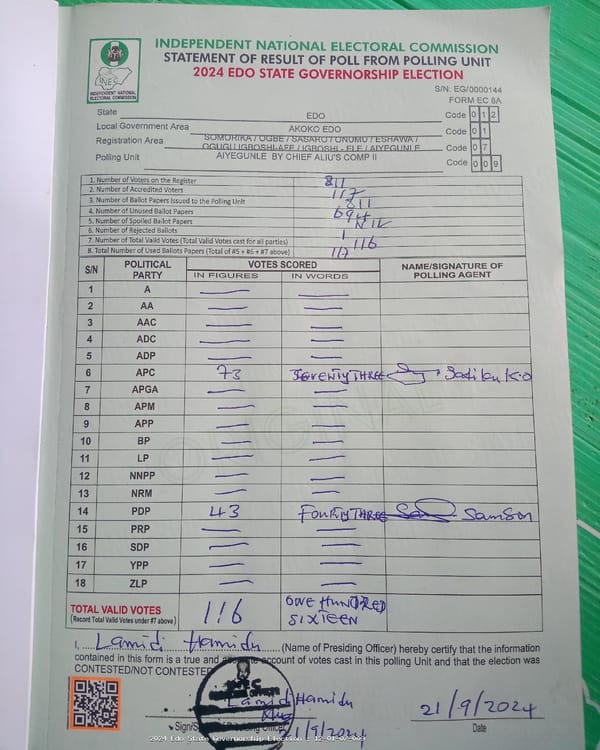 INDEPENDENT NATIONAL ELECTORAL COMMISSION
STATEMENT OF RESULT OF POLL FROM POLLING UNIT
2024 EDO STATE GOVERNORSHIP ELECTION
INEC
INDEPENDENT NATIONAL
ELECTORAL COMMISSION
S/N: EG/0000144
FORM EC 8A
State EDO Code 0 1 2
Local Government Area AKOKO EDO Code 0 1
Registration Area SOMORIKA / OGBE / SASARO / ONUMU / ESHAWA / Code 0 7
OGUGU IGBOSHI-AFE / IGBOSHI - ELE / AIYEGUNLE
Polling Unit AIYEGUNLE BY CHIEF ALIU'S COMP II Code 0 0 9
1. Number of Voters on the Register 811
2. Number of Accredited Voters 117
3. Number of Ballot Papers Issued to the Polling Unit 811
4. Number of Unused Ballot Papers 694
5. Number of Spoiled Ballot Papers NIL
6. Number of Rejected Ballots 1
7. Number of Total Valid Votes (Total Valid Votes cast for all parties) 116
8. Total Number of Used Ballots Papers (Total of #5 + #6 + #7 above) 117
S/N POLITICAL PARTY VOTES SCORED NAME/SIGNATURE OF POLLING AGENT
IN FIGURES IN WORDS
1 A — —
2 AA — —
3 AAC — —
4 ADC — —
5 ADP — —
6 APC 73 SEVENTY THREE Sadiku K.O
7 APGA — —
8 APM — —
9 APP — —
10 BP — —
11 LP — —
12 NNPP — —
13 NRM — —
14 PDP 43 FOURTY THREE Samson
15 PRP — —
16 SDP — —
17 YPP — —
18 ZLP — —
TOTAL VALID VOTES 116 ONE HUNDRED
(Record Total Valid Votes under #7 above) SIXTEEN
ORIGINAL
I, Lamidi Hamidu (Name of Presiding Officer) hereby certify that the information
contained in this form is a true and account of votes cast in this polling Unit and that the election was
CONTESTED/NOT CONTESTED
Lamidi Hamidu
21/9/2024
21/9/2024
Date
2024 Edo State Governorship Election : 12-01-07-009